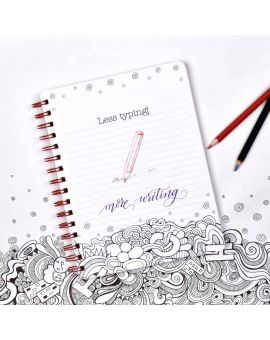 Less typing!
more writing